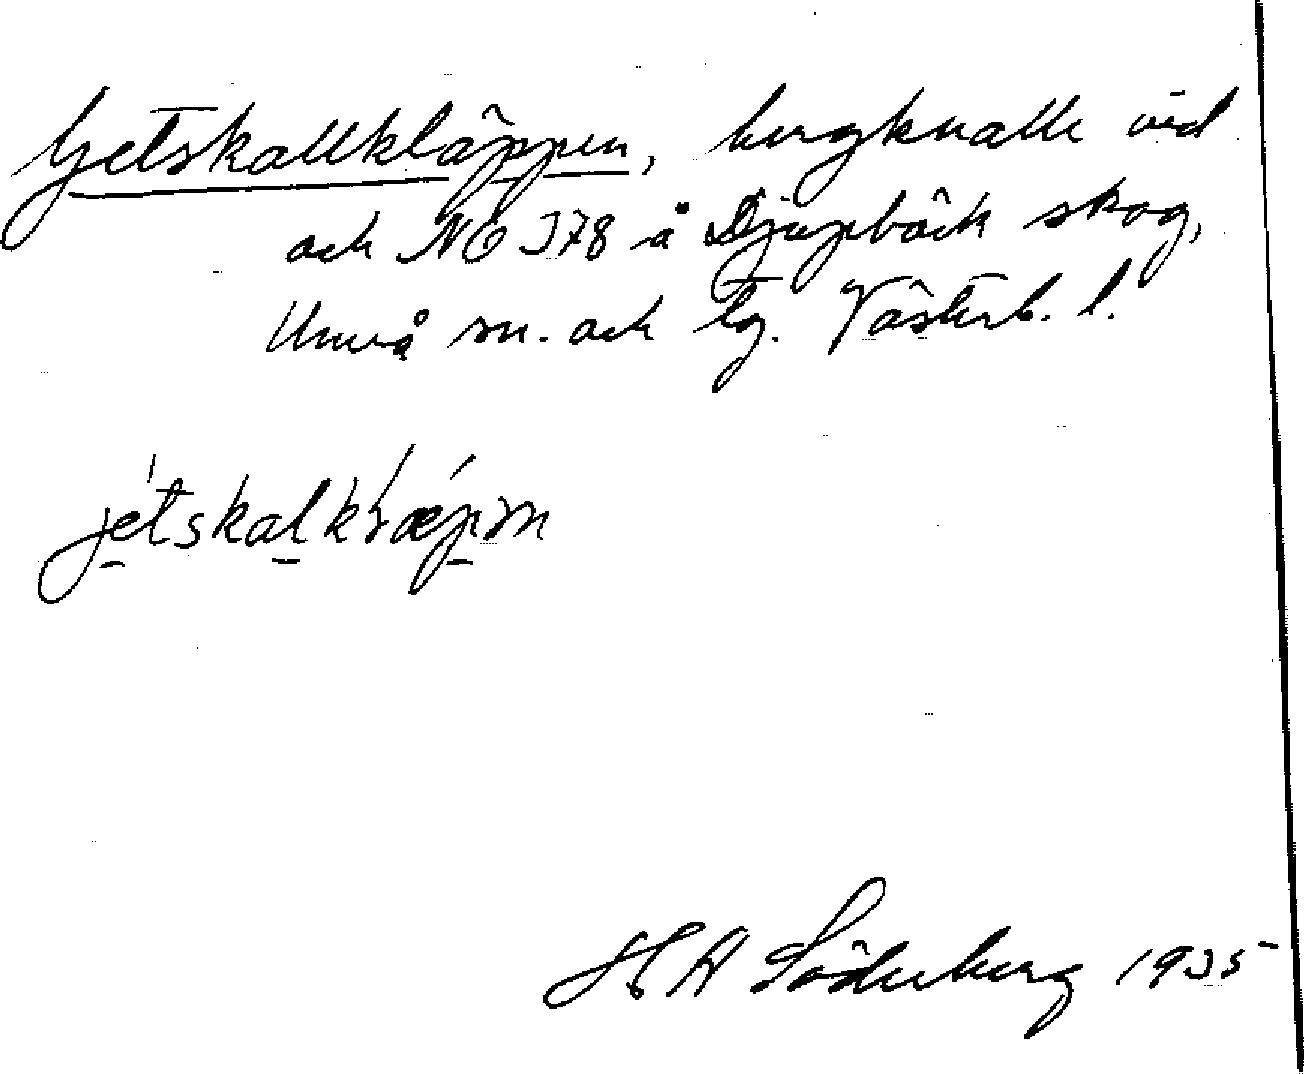 Getskallkläppen, bergknalle vid
och NO 378 å Djupbäck skog,
Umeå sn. och tg. Västerb. l.
H A Söderberg 1935